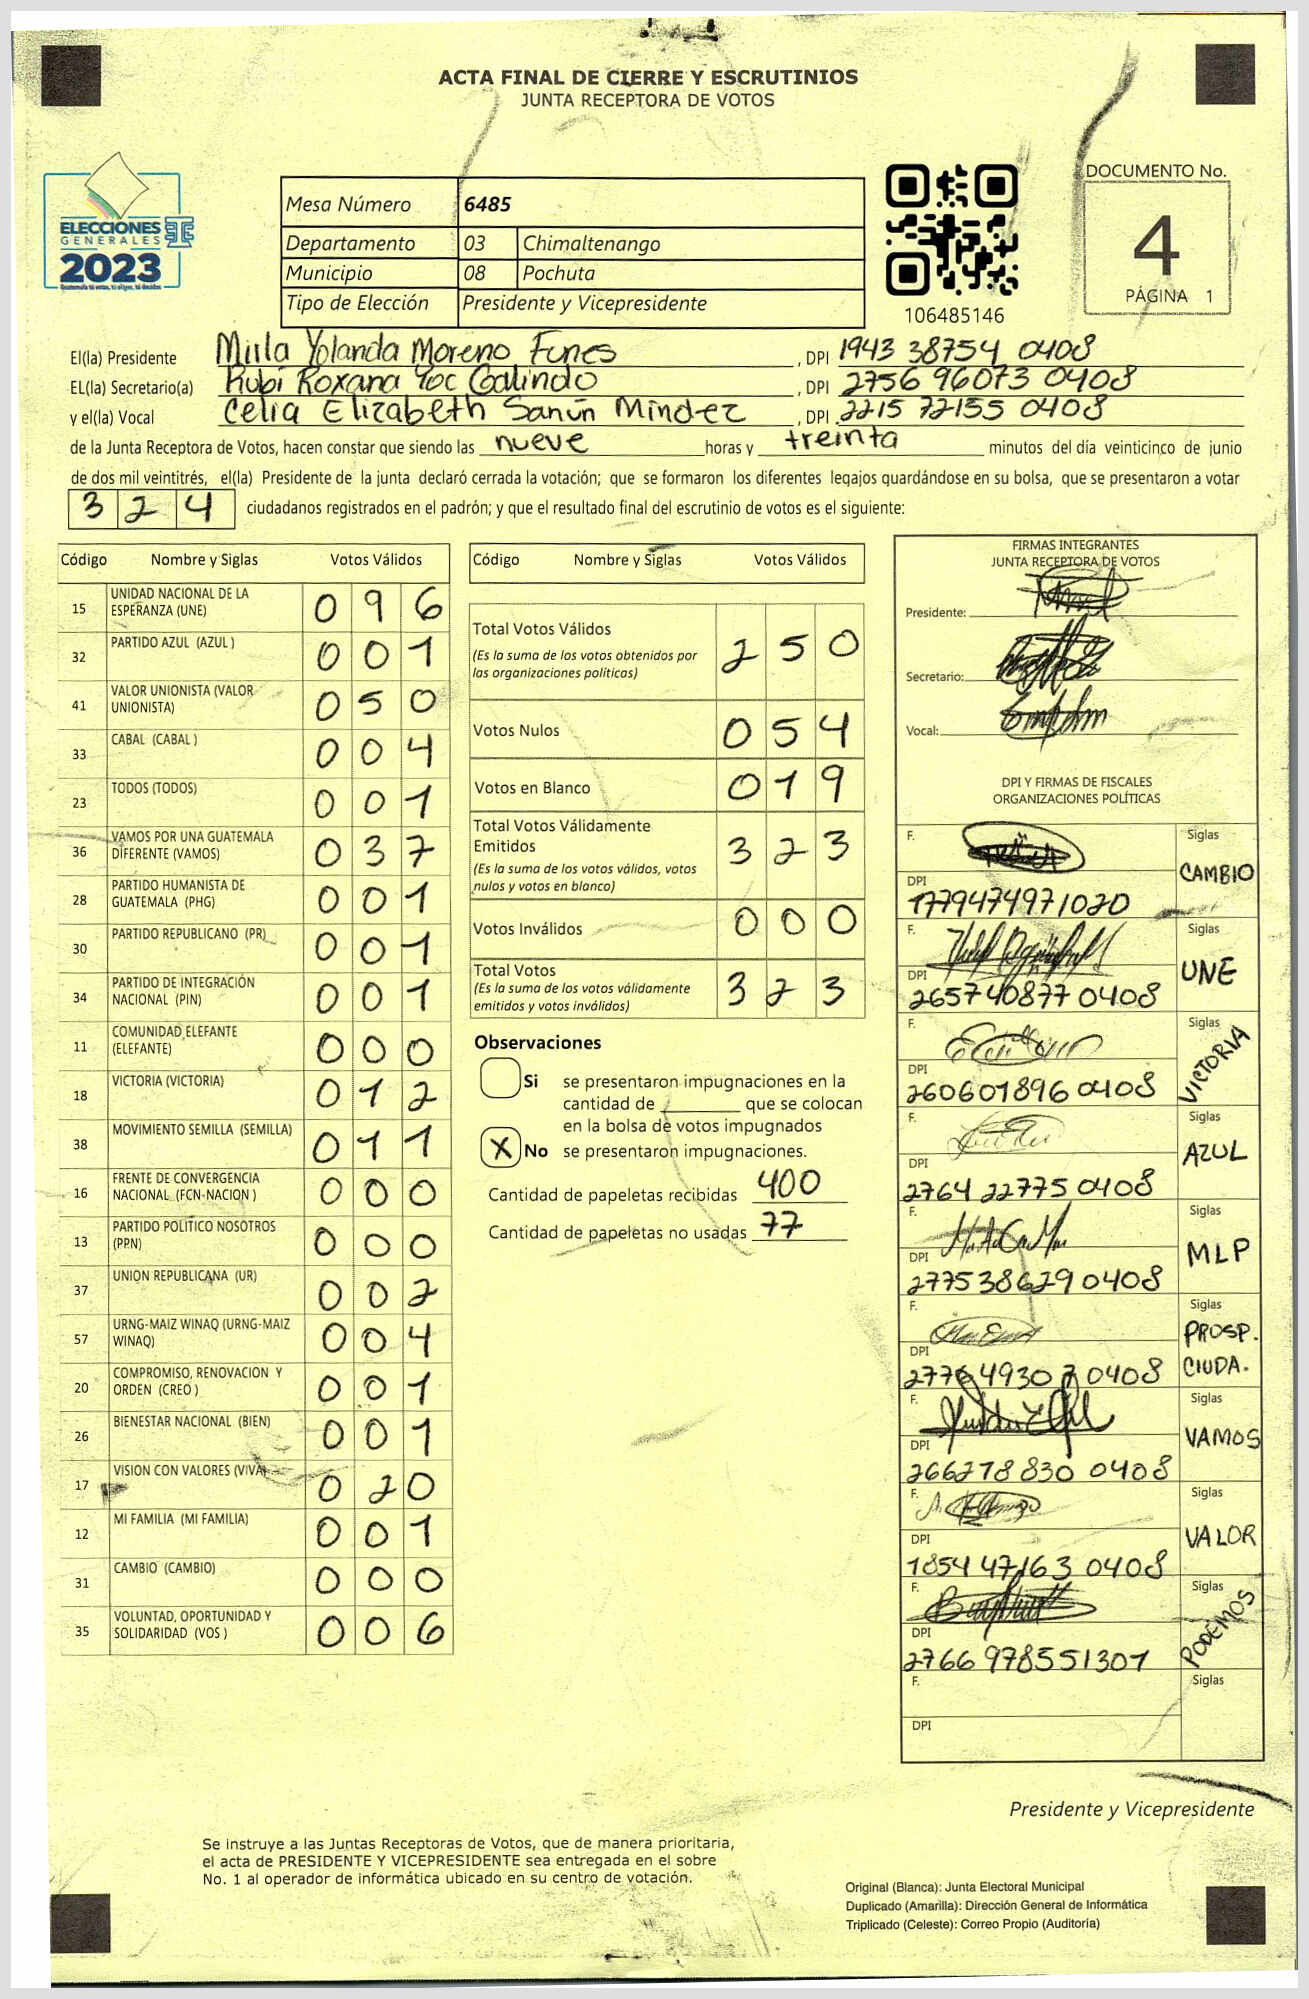 ACTA FINAL DE CIERRE Y ESCRUTINIOS
JUNTA RECEPTORA DE VOTOS
ELECCIONES
GENERALES
2023
Guatemala tú votas, tú eliges, tú decides
Mesa Número 6485
Departamento 03 Chimaltenango
Municipio 08 Pochuta
Tipo de Elección Presidente y Vicepresidente
106485146
DOCUMENTO No.
4
PÁGINA 1
El(la) Presidente Mirla Yolanda Moreno Funes, DPI 1943 38754 0408
EL(la) Secretario(a) Rubi Roxana Yoc Galindo, DPI 2756 96073 0408
y el(la) Vocal Celia Elizabeth Sanún Mindez, DPI 2215 72155 0408
de la Junta Receptora de Votos, hacen constar que siendo las nueve horas y treinta minutos del día veinticinco de junio
de dos mil veintitrés, el(la) Presidente de la junta declaró cerrada la votación; que se formaron los diferentes legajos guardándose en su bolsa, que se presentaron a votar
324 ciudadanos registrados en el padrón; y que el resultado final del escrutinio de votos es el siguiente:
Código Nombre y Siglas Votos Válidos
15 UNIDAD NACIONAL DE LA ESPERANZA (UNE) 096
32 PARTIDO AZUL (AZUL ) 001
41 VALOR UNIONISTA (VALOR UNIONISTA) 050
33 CABAL (CABAL ) 004
23 TODOS (TODOS) 001
36 VAMOS POR UNA GUATEMALA DIFERENTE (VAMOS) 037
28 PARTIDO HUMANISTA DE GUATEMALA (PHG) 001
30 PARTIDO REPUBLICANO (PR) 001
34 PARTIDO DE INTEGRACIÓN NACIONAL (PIN) 001
11 COMUNIDAD ELEFANTE (ELEFANTE) 000
18 VICTORIA (VICTORIA) 012
38 MOVIMIENTO SEMILLA (SEMILLA) 011
16 FRENTE DE CONVERGENCIA NACIONAL (FCN-NACION ) 000
13 PARTIDO POLITICO NOSOTROS (PPN) 000
37 UNION REPUBLICANA (UR) 002
57 URNG-MAIZ WINAQ (URNG-MAIZ WINAQ) 004
20 COMPROMISO, RENOVACION Y ORDEN (CREO ) 001
26 BIENESTAR NACIONAL (BIEN) 001
17 VISION CON VALORES (VIVA) 020
12 MI FAMILIA (MI FAMILIA) 001
31 CAMBIO (CAMBIO) 000
35 VOLUNTAD, OPORTUNIDAD Y SOLIDARIDAD (VOS ) 006
Código Nombre y Siglas Votos Válidos
Total Votos Válidos 250
(Es la suma de los votos obtenidos por
las organizaciones políticas)
Votos Nulos 054
Votos en Blanco 019
Total Votos Válidamente
Emitidos 323
(Es la suma de los votos válidos, votos
nulos y votos en blanco)
Votos Inválidos 000
Total Votos 323
(Es la suma de los votos válidamente
emitidos y votos inválidos)
Observaciones
Si se presentaron impugnaciones en la
cantidad de ________ que se colocan
en la bolsa de votos impugnados
X No se presentaron impugnaciones.
Cantidad de papeletas recibidas 400
Cantidad de papeletas no usadas 77
FIRMAS INTEGRANTES
JUNTA RECEPTORA DE VOTOS
Presidente:
Secretario:
Vocal:
DPI Y FIRMAS DE FISCALES
ORGANIZACIONES POLÍTICAS
F. Siglas
CAMBIO
DPI
1779474971020
F. Siglas
UNE
DPI
265740877 0408
F. Siglas
VICTORIA
DPI
260601896 0408
F. Siglas
AZUL
DPI
2764 22775 0408
F. Siglas
MLP
DPI
277538629 0408
F. Siglas
PROSP.
CIUDA.
DPI
2776 4930 7 0408
F. Siglas
VAMOS
DPI
266278830 0408
F. Siglas
VALOR
DPI
1854 47163 0408
F. Siglas
PODEMOS
DPI
2766 978551301
F. Siglas
DPI
Presidente y Vicepresidente
Se instruye a las Juntas Receptoras de Votos, que de manera prioritaria,
el acta de PRESIDENTE Y VICEPRESIDENTE sea entregada en el sobre
No. 1 al operador de informática ubicado en su centro de votación.
Original (Blanca): Junta Electoral Municipal
Duplicado (Amarilla): Dirección General de Informática
Triplicado (Celeste): Correo Propio (Auditoría)